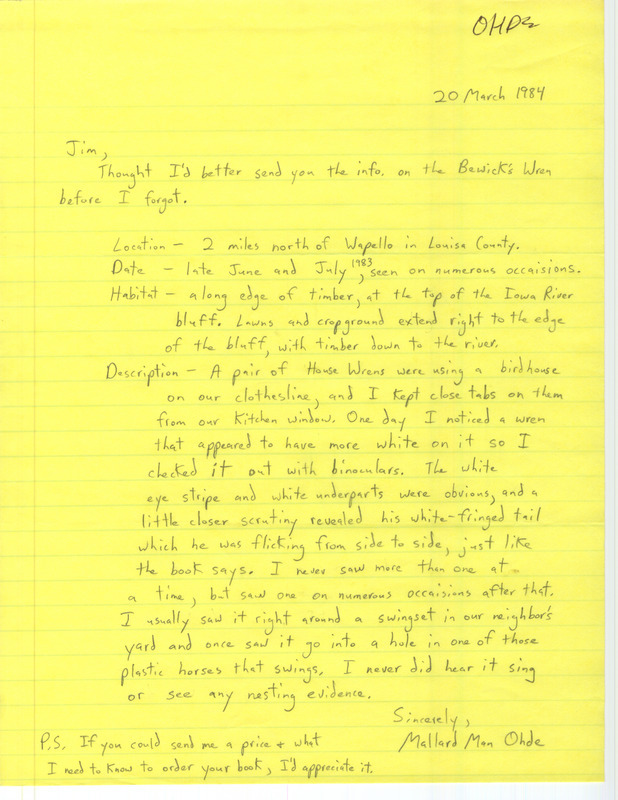 20 March 1984
Jim,
Thought I'd better send you the info. on the Bewick's Wren
before I forgot.
Location - 2 miles north of Wapello in Louisa County.
Date - late June and July, 1983 seen on numerous occaisions.
Habitat - along edge of timber, at the top of the Iowa River
bluff. Lawns and cropground extend right to the edge
of the bluff, with timber down to the river.
Description - A pair of House Wrens were using a birdhouse
on our clothesline, and I kept close tabs on them
from our kitchen window. One day I noticed a wren
that appeared to have more white on it so I
checked it out with binoculars. The white
eye stripe and white underparts were obvious, and a
little closer scrutiny revealed his white-fringed tail
which he was flicking from side to side, just like
the book says. I never saw more than one at
a time, but saw one on numerous occaisions after that.
I usually saw it right around a swingset in our neighbor's
yard and once saw it go into a hole in one of those
plastic horses that swings. I never did hear it sing
or see any nesting evidence.
Sincerely,
Mallard Man Ohde
P.S. If you could send me a price + what
I need to know to order your book, I'd appreciate it.